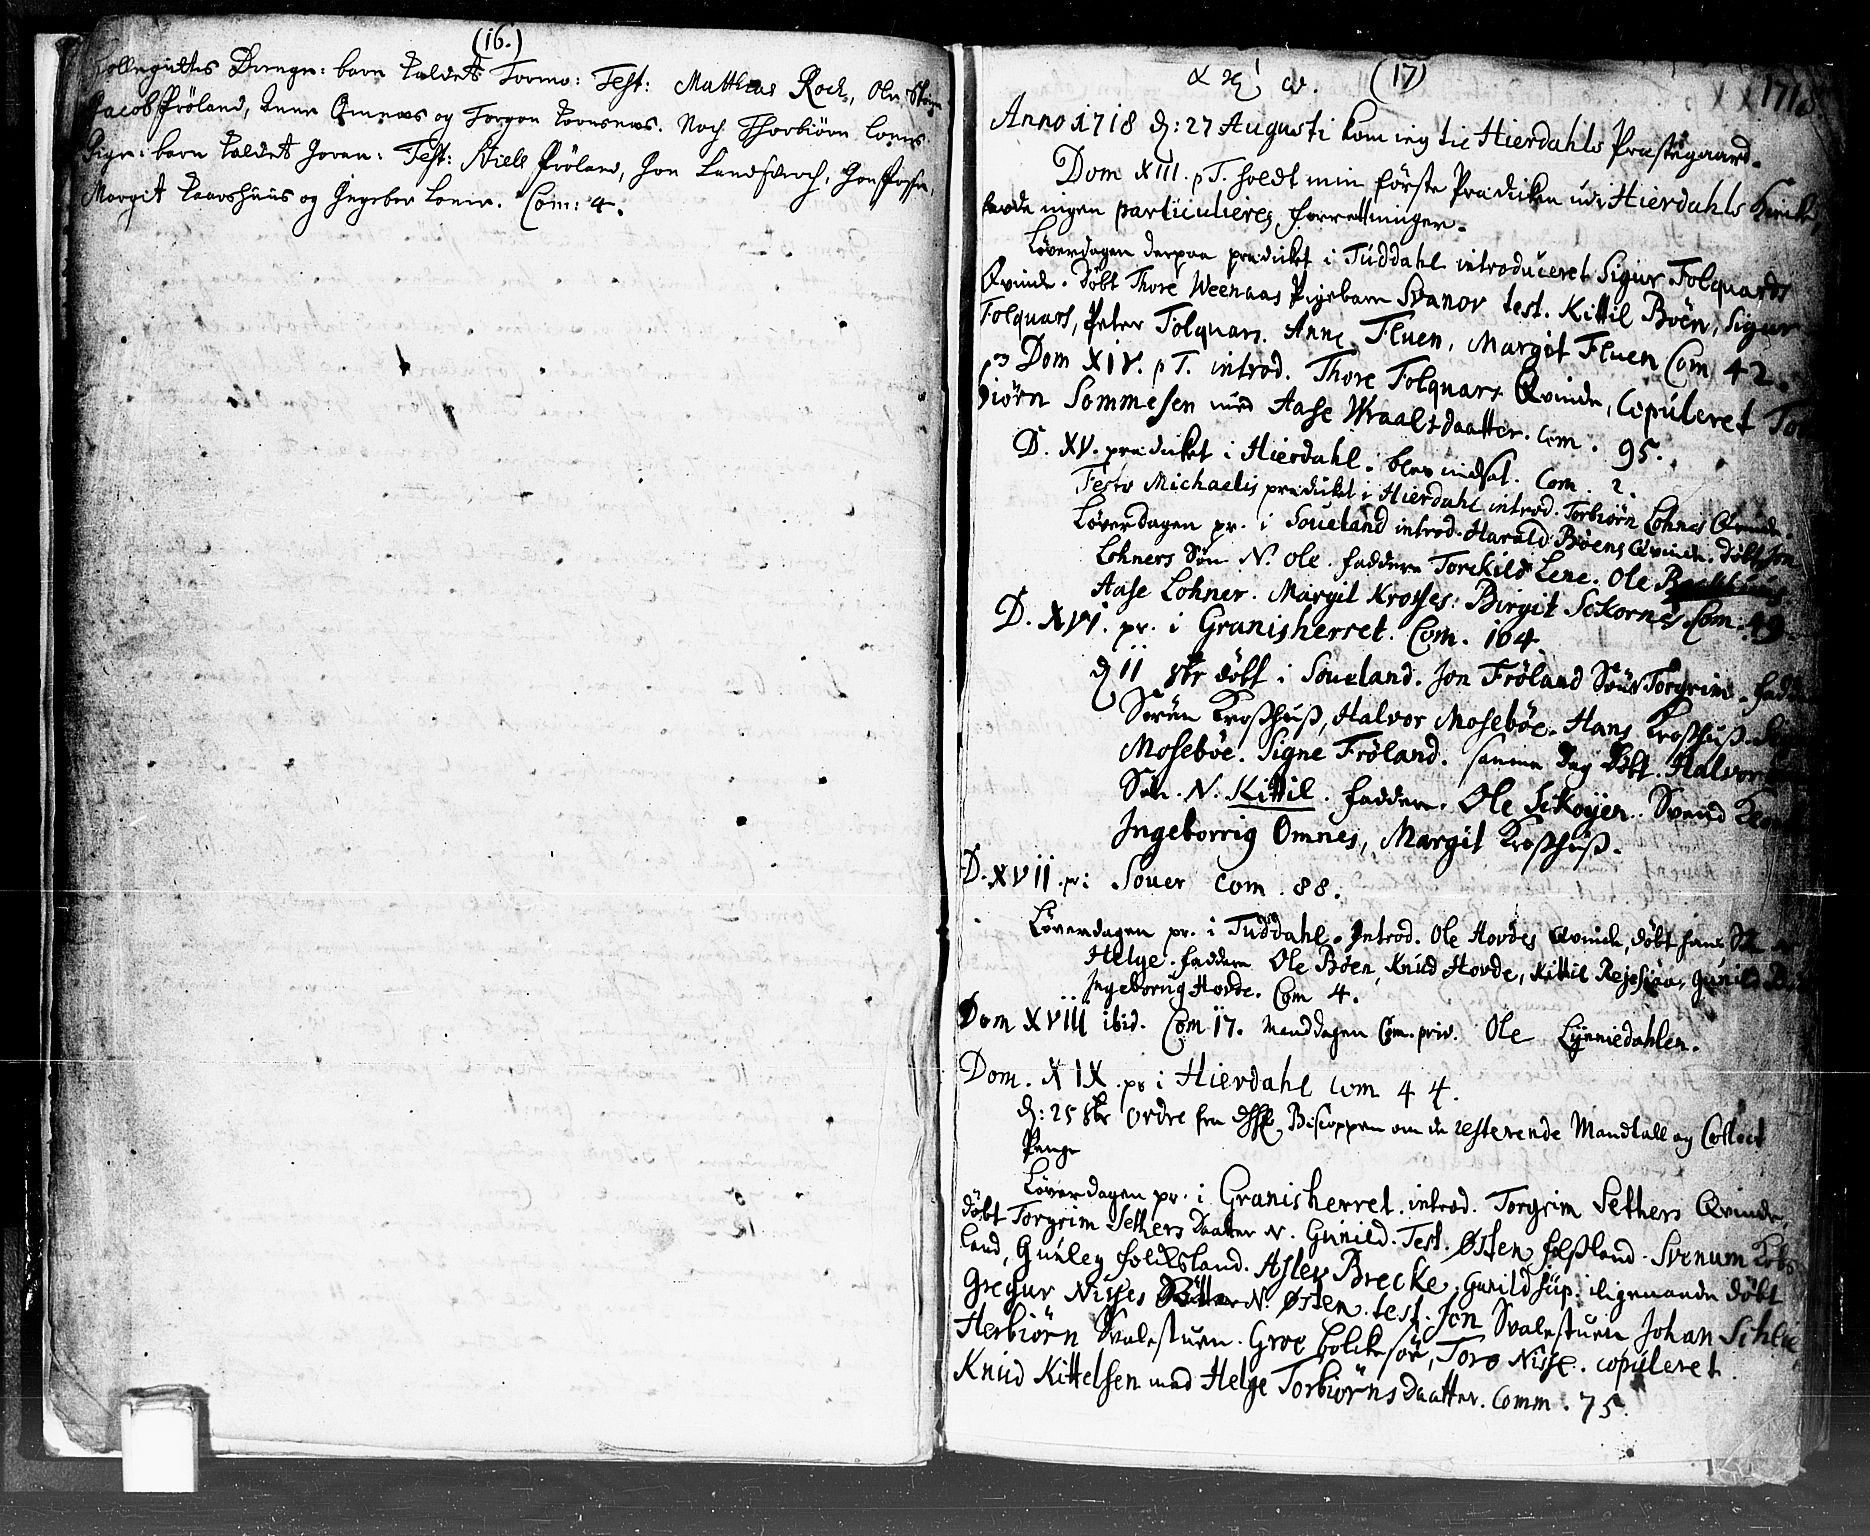 (16.)
Drenge: barn kaldet Tormo: Test: Matthias Roch, Ole
Jacob Fröland, Omenæs og Torgon
Pige: barn kaldet Joran: Test: Niels Fröland, Jon Landsverch,
Margit og Ingebor Loner. Com: 4.
(17) 1718
Anno 1718 d: 27 Augusti kom ieg til Hierdahls Præstegaard.
Dom XIII. p T. holdt min förste Prædicken udi Hierdahls Kircke,
hafde ingen particulieres forretninger.
Löverdagen derpaa prædicket i Tuddahl introduceret Sigur Folquards
Qvinde. döbt Thore Weenaas Pigebarn Svanov test. Kittil Böen, Sigur
Folquars, Peter Folquars. Anne Fluen, Margit Fluen Com 42.
Dom XIV. p T. introd. Thore Folquars Qvinde, Copuleret Tor
biörn Sommesen med Aase Wraalsdaatter. Com. 95.
D. XV. prædicket i Hierdahl. blev indsat. Com. 2.
Festo Michaelis prædicket i Hierdahl introd. Torbiörn Lohnes Qvinde.
Löverdagen pr. i Soueland introd. Harald Böens Qvinde. döbt Jon
Lohners Sön N. Ole. faddere Torckild Lene. Ole
Aase Lohner. Margit Krosses: Birgit Sckornes. Com. 49.
D. XVI. pr. i Granisherret. Com. 104.
d 11 8br döbt i Soueland. Jon Fröland Söns Torgrim. fadd
Sören Kroßhuß, Halvor Moseböe. Hans Kroßhuß.
Moseböe. Signe Fröland. samme Dag döbt. Halvor
Sön. N. Kittil. faddere. Ole Sckoyen. Svend
Ingeborrig Omnes, Margit Kroßhuß.
D. XVII. pr i Souer Com. 88.
Löverdagen pr. i Tuddahl. Introd. Ole Hovdes Qvinde, döbt hans Sön
Helge. faddere Ole Böen, Knud Hovde, Kittil, Gunild
Ingeborug Hovde. Com 4.
Dom XVIII ibid. Com 17. Manddagen Com. priv. Ole Lynniedahlen.
Dom. XIX. pr i Hierdahl Com 44.
d: 25 8br Ordre fra Biscoppen om de resterende Mandtall og Collect
Penge
Löverdagen pr. i Granisherret. introd. Torgrim Sethers Qvinde,
döbt Torgrim Sethers Daatter N. Gunild. Test. Østen. Svenum
land, Gunleg. Aslev Brecke, Gunild. iligemaade döbt
Gregur Nisses N. Østen. test. Jon Svalestuen Johan
Herbiörn Svalestuen. Groe, Toro Nisse. copuleret
Knud Kittelsen med Helge Torbiörnsdaatter. Comm. 75.